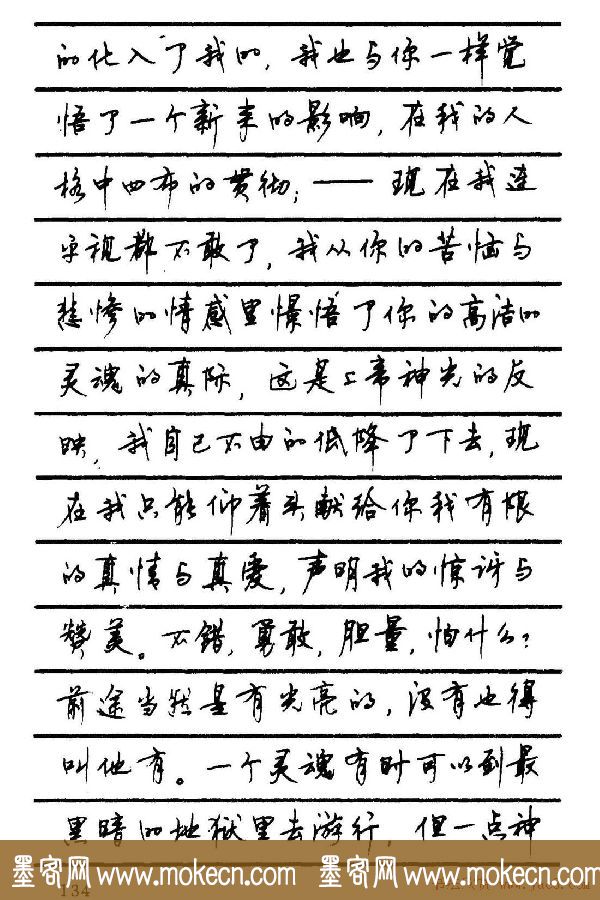 的化入了我的，我也与你一样觉
悟了一个新来的影响，在我的人
格中四布的贯彻；——现在我连
平视都不敢了，我从你的苦恼与
悲惨的情感里憬悟了你的高洁的
灵魂的真际，这是上帝神光的反
映，我自己不由的低降了下去，现
在我只能仰着头献给你我有限
的真情与真爱，声明我的惊讶与
赞美。不错，勇敢，胆量，怕什么？
前途当然是有光亮的，没有也得
叫他有。一个灵魂有时可以到最
黑暗的地狱里去游行，但一点神
墨客网 www.mokecn.com 墨客网 www.mokecn.com
134